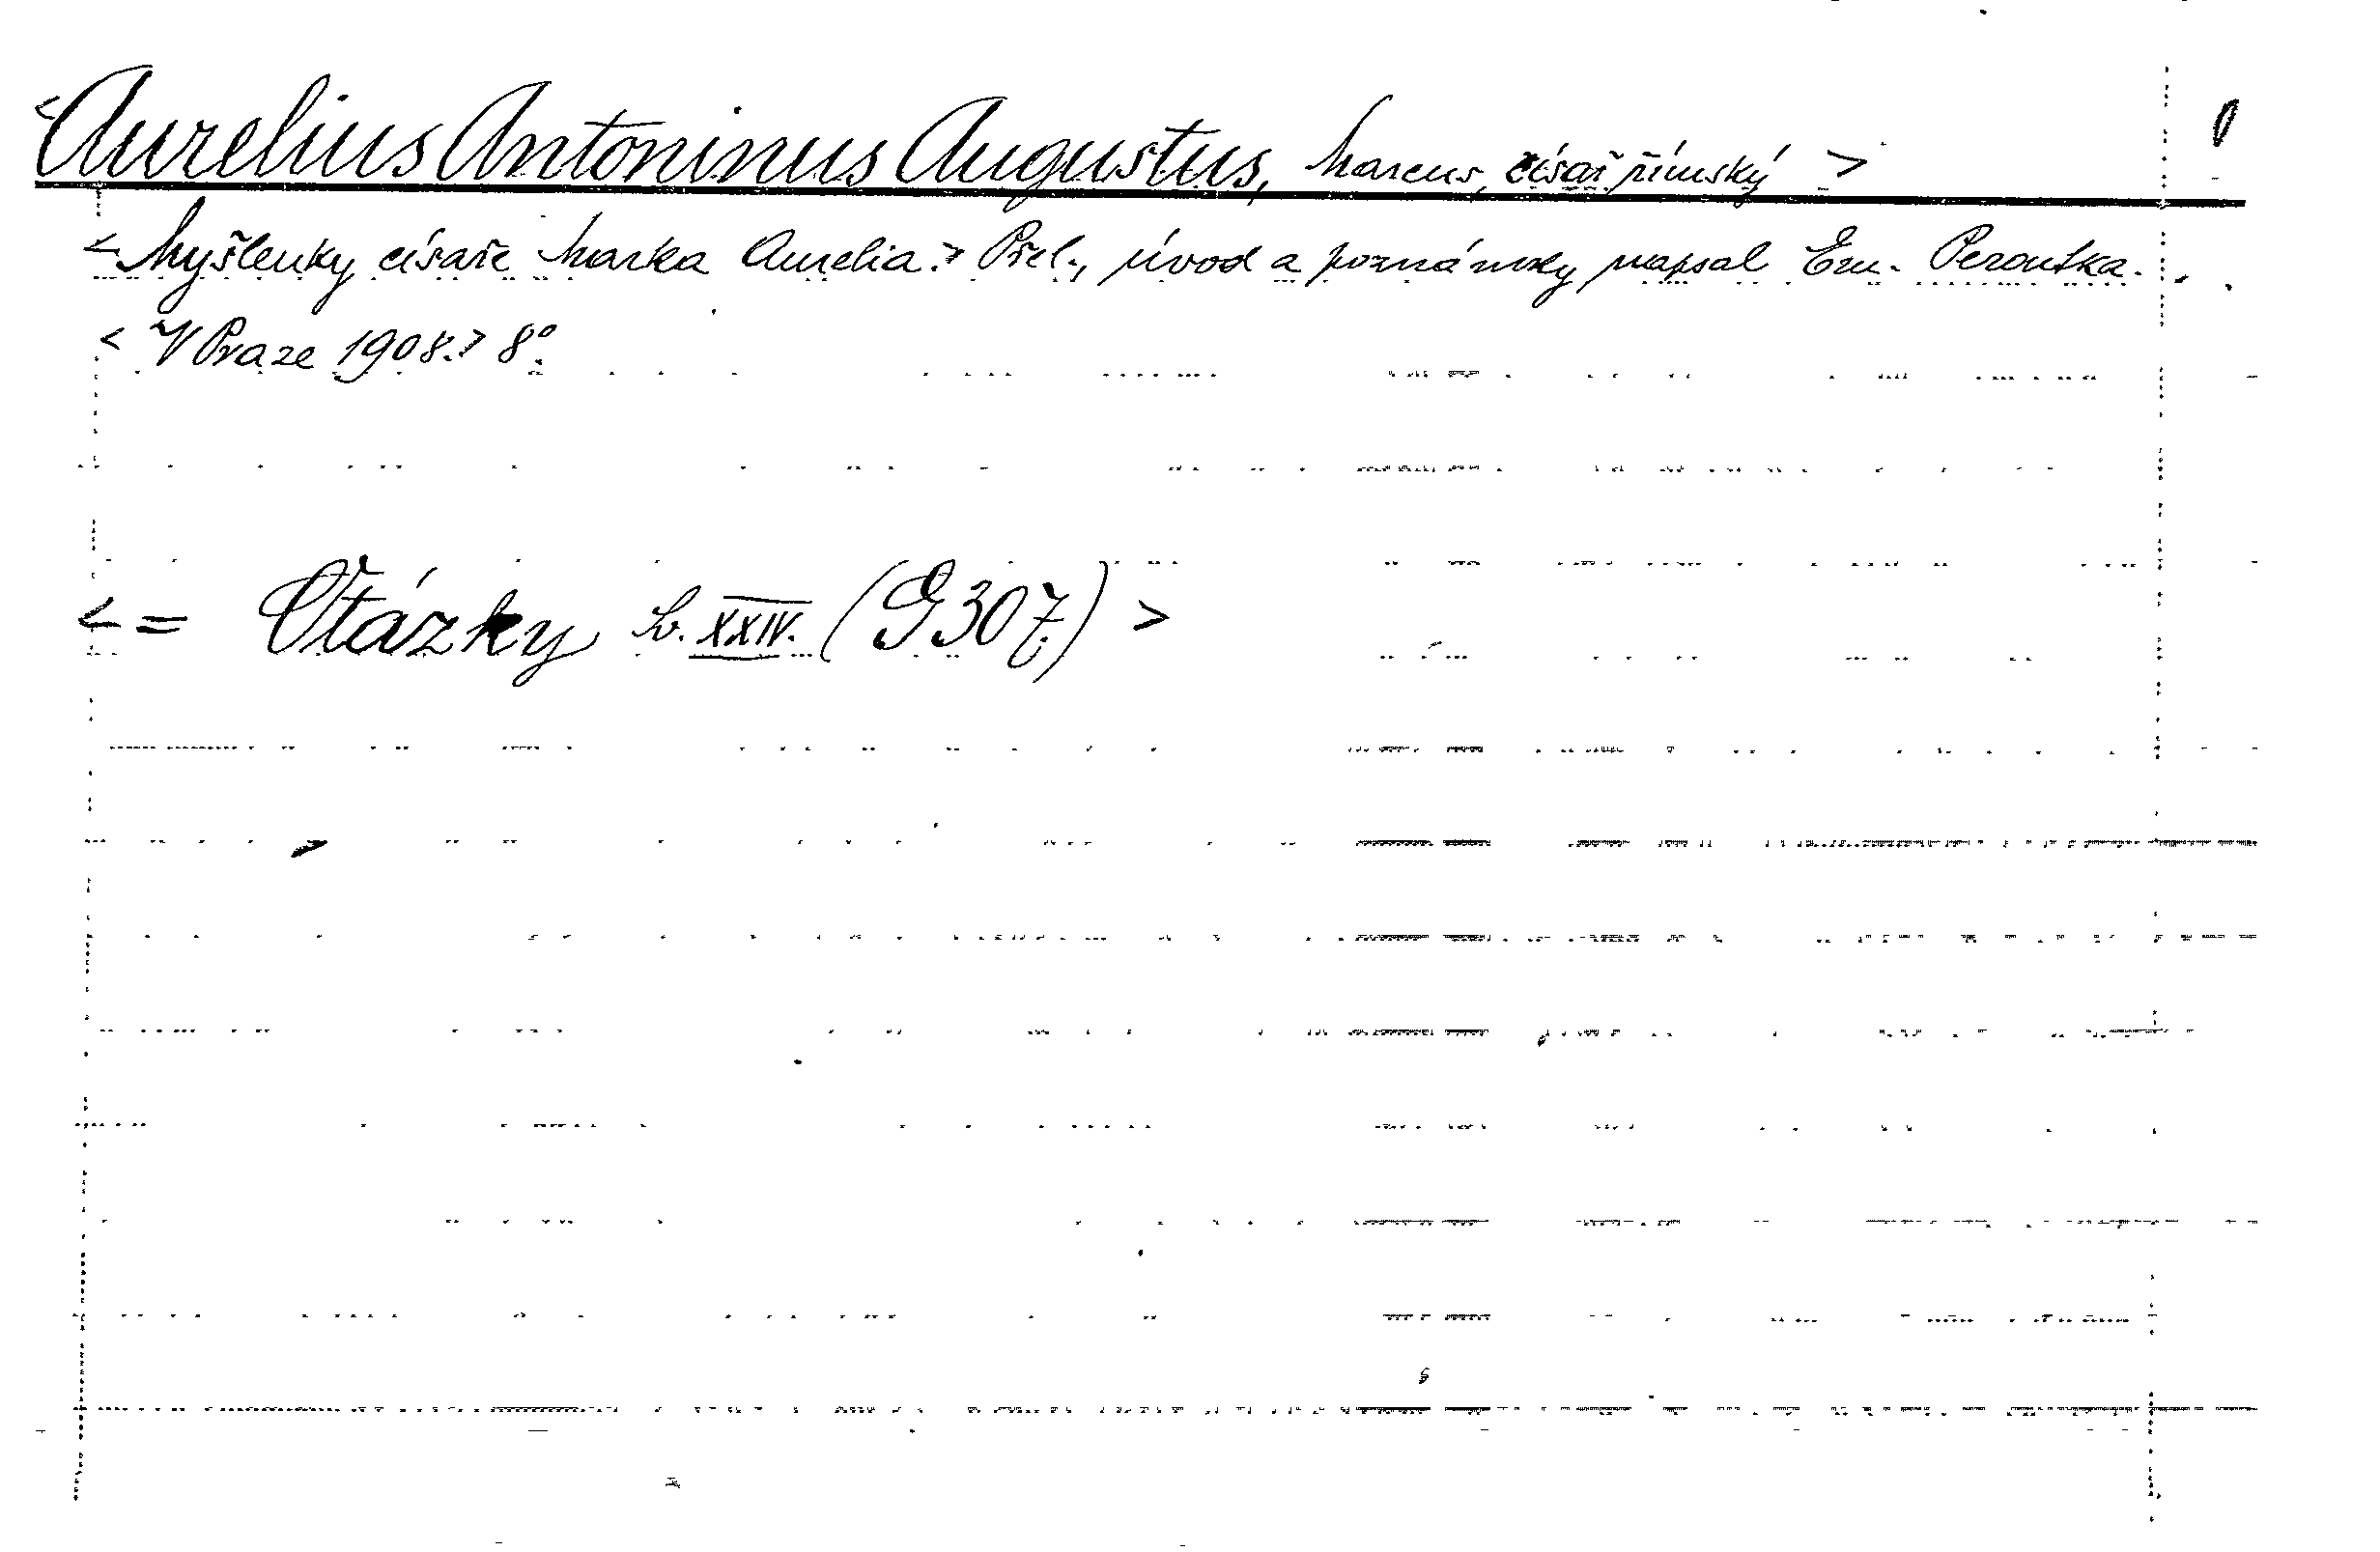 <Aurelius Antoninus Augustus, Marcus, císař římský >
<Myšlenky císaře Marka Aurelia.> Přel., úvod a poznámky napsal Em. Peroutka.
< V Praze 1908.> 8°.
< = Otázky sv. XXIV. (G307.) >